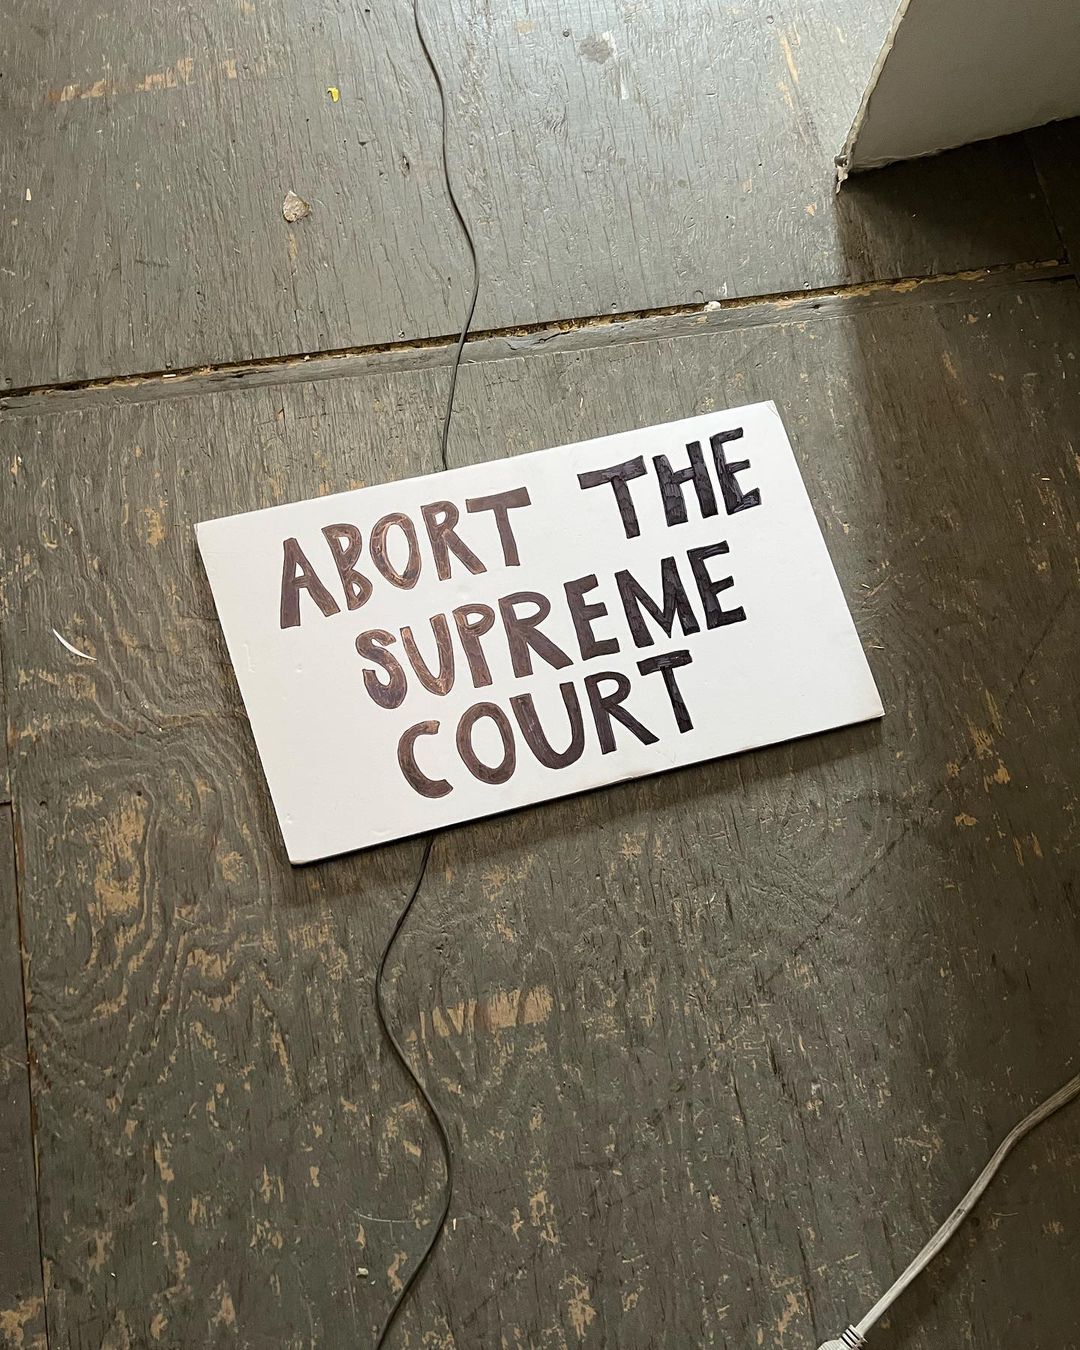 ABORT THE
SUPREME
COURT